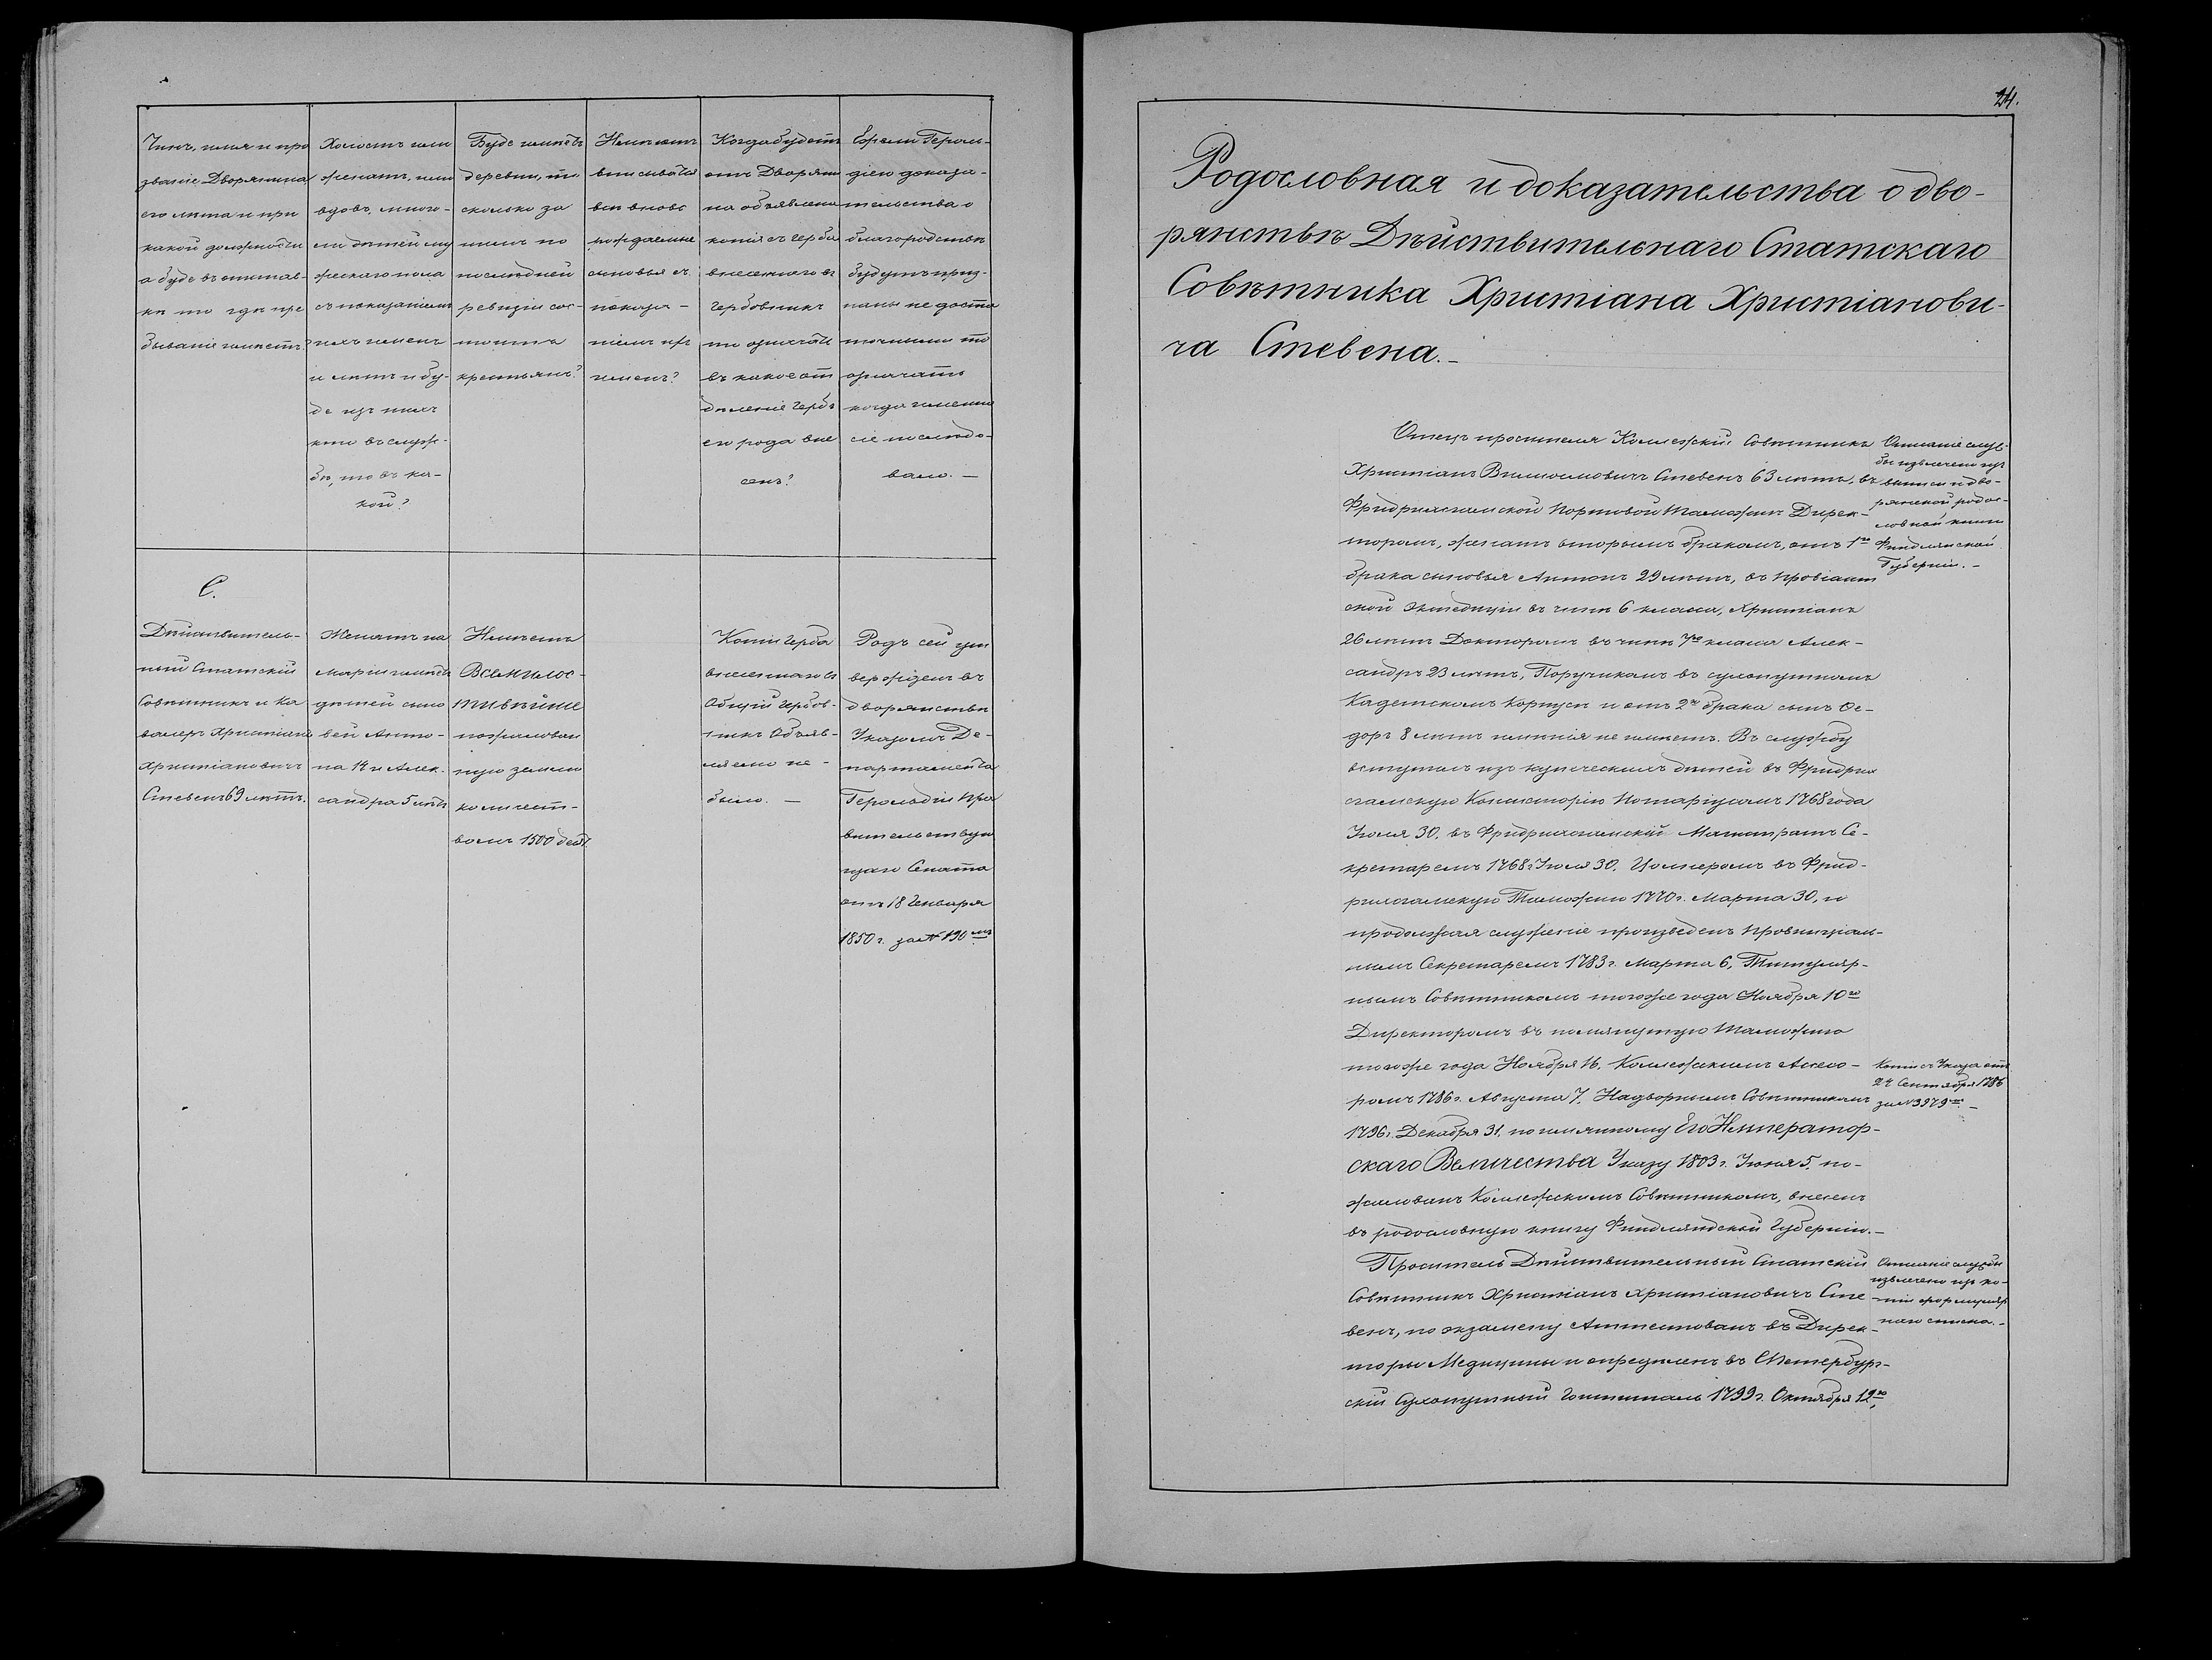 Чинъ, имя и про
званіе Дворянина
его лѣта и при
какой должности
а буде въ отстав-
кѣ то гдѣ пре
бываніе имѣетъ?
Холостъ или
женатъ, или
вдовъ, много-
ли дѣтей му
жескаго пола
съ показаніемъ
ихъ именъ
и лѣтъ и бу-
де изъ нихъ
кто въ служ-
бѣ, то въ ка-
кой?
Буде имѣетъ
деревни, то
сколько за
нимъ по
послѣдней
ревизіи сос-
тоитъ
крестьянъ?
Имѣютъ
вписыватся
всѣ вновь
рождаемые
сыновья съ
показа-
ніемъ ихъ
именъ?
Когда будетъ
отъ Дворяни
на объявлена
копія съ герба
внесеннаго въ
Гербовникъ
то означать
въ какое от
дѣленіе Гербъ
его рода вне
сенъ?
Ежели Героль-
діею доказа-
тельства о
благородствѣ
будутъ приз-
наны не доста
точными то
означать
когда именно
сіе послѣдо-
вало. —
С.
Дѣйствитель-
ный Статскій
Совѣтникъ и Ка
валеръ Христіанъ
Христіановичъ
Стевенъ 69 лѣтъ.
Женатъ на
Маріи имѣетъ
дѣтей сыно
вей Анто-
на 14 и Алек-
сандра 5 лѣтъ
Имѣетъ
Всемилос-
тивѣйше
пожалован
ную землю
количест-
вомъ 1500 десят.
Копіи Герба
внесеннаго въ
Общій Гербов-
никъ Объяв-
лено не-
было. —
Родъ сей ут
вержденъ въ
дворянствѣ
Указомъ Де-
партамента
Герольдіи Пра
вительствую
щаго Сената
отъ 18 Генваря
1850 г. за № 190 мъ
24.
Родословная и доказательства о дво-
рянствѣ Дѣйствительнаго Статскаго
Совѣтника Христіана Христіанови-
ча Стевена. —
Отецъ просителя Коллежскій Совѣтникъ
Христіанъ Вильгельмовичъ Стевенъ 63 лѣтъ, въ
Фридрихсгамской Портовой Таможнѣ Дирек-
торомъ, женатъ вторымъ бракомъ, отъ 1го
брака сыновья Антонъ 29 лѣтъ, въ Провіант
ской Экспедиціи въ чинѣ 6 класса, Христіанъ
26 лѣтъ Докторомъ въ чинѣ 7го класса Алек-
сандръ 23 лѣтъ, Поручикомъ въ сухопутномъ
Кадетскомъ Корпусѣ и отъ 2го брака сынъ Ѳе-
доръ 8 лѣтъ имѣнія не имѣетъ. Въ службу
вступилъ изъ купеческихъ дѣтей въ Фридрих
сгамскую Консисторію Нотаріусомъ 1768 года
Іюля 30. въ Фридрихсгамскій Магистратъ Се-
кретаремъ 1768 г. Іюля 30. Цолнеромъ въ Фрид-
рихсгамскую Таможню 1770 г. Марта 30, и
продолжая служеніе произведенъ Провинціаль-
нымъ Секретаремъ 1783 г. Марта 6, Титуляр-
нымъ Совѣтникомъ тогоже года Ноября 10го
Директоромъ въ помянутую Таможню
тогоже года Ноября 16. Коллежскимъ Асессо-
ромъ 1786 г. Августа 7. Надворнымъ Совѣтникомъ
1796 г. Декабря 31. по имянному Его Император-
скаго Величества Указу 1803 г. Іюня 5. по-
жалованъ Коллежскимъ Совѣтникомъ, внесенъ
въ родословную книгу Финдляндской Губерніи. —
Проситель Дѣйствительный Статскій
Совѣтникъ Христіанъ Христіановичъ Сте
венъ, по экзамену Аттестованъ въ Дирек-
торы Медицины и опредѣленъ въ СПетербург-
скій Сухопутный Гошпиталь 1799 г. Октября 12го,
Описаніе служ-
бы извлечено изъ
выписи и дво-
рянской родос-
ловной книги
Финдлянской
Губерніи. —
Копія съ Указа отъ
24 Сентября 1786
за № 3979мъ. —
Описаніе службы
извлечено изъ ко-
піи формуляр
наго списка. —